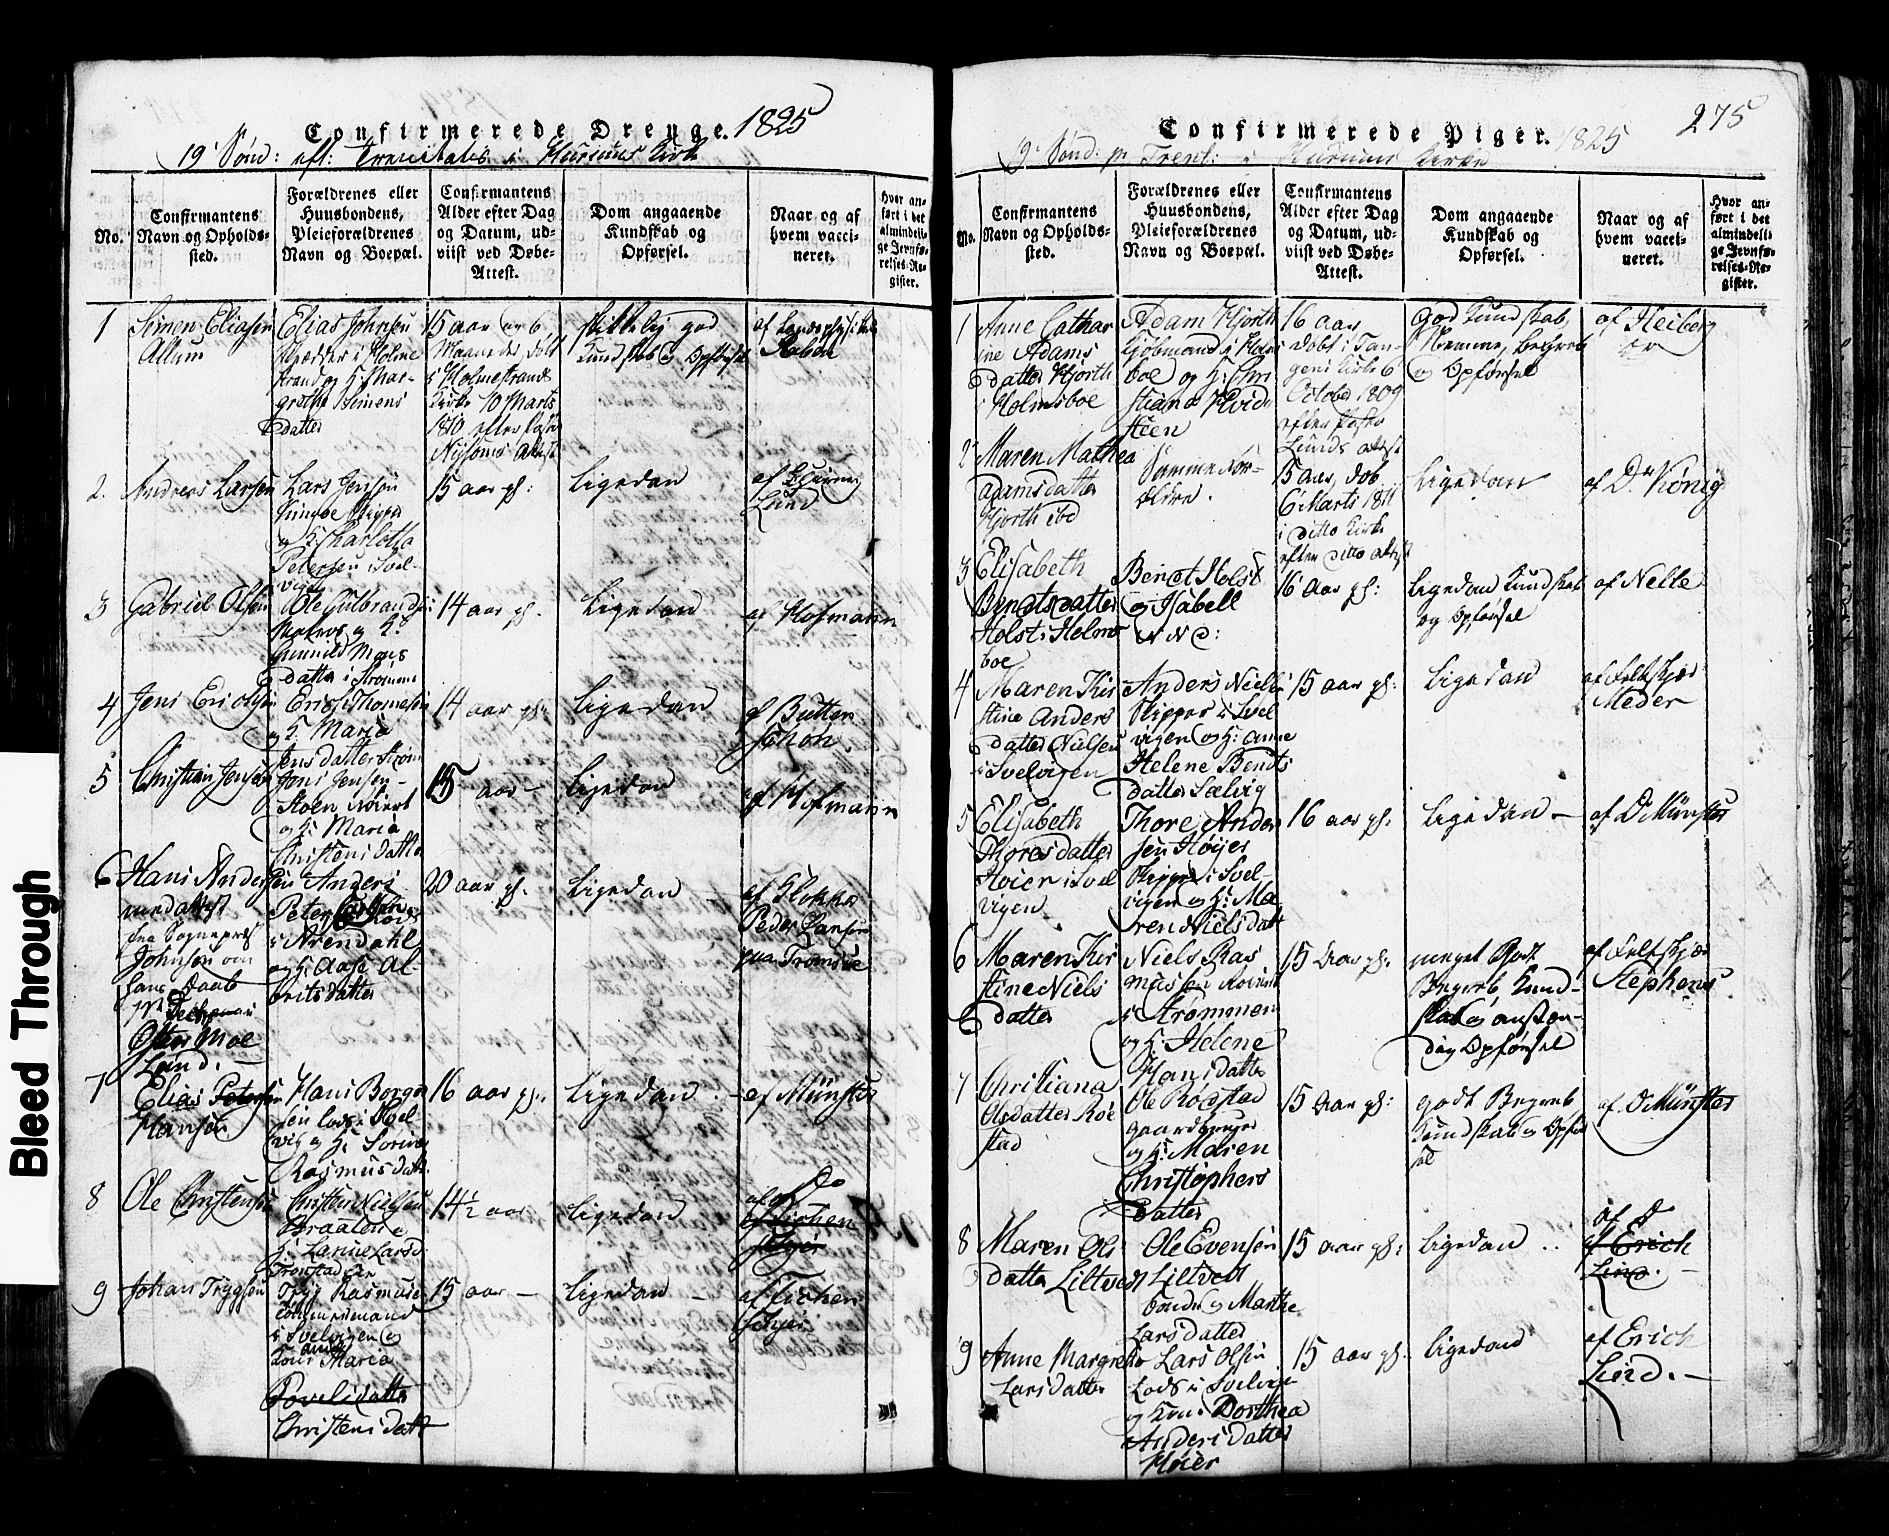 Bleed Through
Confirmerede Drenge. 1825
19 Sønd: eft: Trinitatis i Hurums Kirke
No.
Confirmantens Navn og Opholdssted.
Forældrenes eller Huusbondens, Pleieforældrenes Navn og Boepæl.
Confirmantens Alder efter Dag og Datum, udviist ved Døbe-Attest.
Dom angaaende Kundskab og Opførsel.
Naar og af hvem vaccineret.
Hvor anført i det almindelige Jevnførelses-Register.
1
Simen Eliasen
Allum
Elias Johnsen
Skrædder i Holme
strand og H: Mar
grethe Simens
datter
15 aar og 6
Maaneder, døbt
i Holmestrands
Kirke 10 Marts
1810 efter
Attest
skikkelig god
Kundskab og Opførsel
af
2.
Andreas Larsen
Lars Jensen
Skipper
og H: Charlotta
Petersen i Svel
vigen
15 aar gl:
Ligedan
af
Lund
3
Gabriel Olsen
Ole Gulbrandsen
og H:
Gunnild Mons
datter i Strømme
14 aar gl.
Ligedan
af Hofmann
4
Jens Erichsen
Erich Thomesen
og H: Maria
Jensdatter Strøm
14 aar gl:
Ligedan
af Butten
schøn.
5
Christian Jensen
Jens Jensen
og H: Maria
Christensdatter
15 aar -
Ligedan
af Hofmann
6
Hans Andersen
med attest
fra Sognepræst
Johnsen om
hans Daab
Lund.
Anders
Petersen
i Arendahl
og H: Aase Al-
britsdatter
20 aar gl.
Ligedan
af Klokker
Peder Hansen
paa Tromsøe
7
Elias Petersen
Hansen
Hans Borge
sen Lods i Svel
vig og H: Sorine
Rasmusdatt.
16 aar gl.
Ligedan.
af Münster
8
Ole Christensen
Christen Nielsen
Braaten og
H: Lars
14½ aar
Ligedan
af Do
9
Johan Trygsen
Tryg Rasmusen
i Svelvigen og
Kone Maria
Povelsdatter
Christensdatt
15 aar -
Ligedan -
af
Confirmerede Piger. 1825
275
19 Sønd: p. Trinit: i Hurums Kirke
No.
Confirmantens Navn og Opholdssted.
Forældrenes eller Huusbondens, Pleieforældrenes Navn og Boepæl.
Confirmantens Alder efter Dag og Datum, udviist ved Døbe-Attest.
Dom angaaende Kundskab og Opførsel.
Naar og af hvem vaccineret.
Hvor anført i det almindelige Jevnførelses-Register.
1
Anne Cathar
ine Adams
datter Hjorth
i Holmsboe
Adam Hjorth
Kjøbmand i Holms
boe og H: Chri
stiana Hvid
steen
16 aar
døbt i Tan
gens Kirke 6
October 1809
efter Pastor
Lunds Attest
God Kundskab,
Nemme, Begreb
og Opførsel
af Heiberg
2
Maren Mathea
Adamsdatter
Hjorth ibd
Samme For-
ældre.
15 aar, døb
6 Marts 1811
i ditto Kirke
efter ditto Attest
Ligedan
af Dr König
3
Elisabeth
Bendtsdatter
Holst i Holms
boe
Bendt Holst
og Isabell
N N d:
16 Aar gl:
Ligedan Kundskab
og Opførsel
af Nelle
4
Maren Kir
stine Anders
datter Nielsen
i Svelvigen
Anders Nielsen
Skipper i Svel
vigen og H: Anne
Helene Bendts
datter Sælvig
15 aar gl:
Ligedan
af Feltskjær
Meder
5
Elisabeth
Thoresdatter
Høier i Svel
vigen
Thore Ander
sen Høyer
Skipper i Svel-
vigen og H: Ma
ren Nielsdatt
16 aar gl.
Ligedan -
af D Münster
6
Maren Kir
stine Niels
datter
Niels Ras
musen
i Strømmen
og H: Helene
Hansdatter
15 Aar gl.
meget Godt
Begreb, Kund-
skab og anstæn-
dig Opførsel
af Feltskjær
Stephens
7
Christiana
Olsdatter Røe
stad
Ole Røestad
Gaardbruger
og H: Maren
Christophers
datter
15 Aar gl:
godt Begreb
Kundskab og Opfør
sel
af D Münster
8
Maren Ols
datter Liltvedt
Ole Evensen
Liltvedt
bonde og Marthe
Larsdatter
15 aar gl:
Ligedan ..
af D
af Erich
Lind. -
9
Anne Margrethe
Larsdatter
Lars Olsen
Lods i Svelvig
og Kone Dorthea
Andersdatter
Høier
15 aar gl.
Ligedand
af Erich
Lind. -